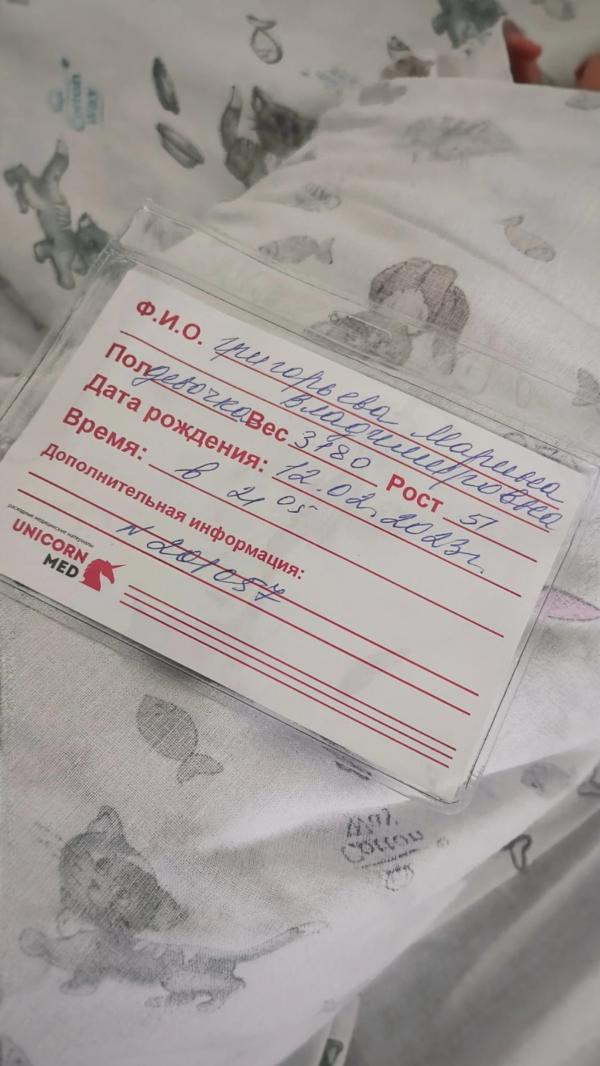 Ф.И.О. Григорьева Марина
Владимировна
Пол девочка Вес 3180 Рост 51
Дата рождения: 12.02.2023г.
Время: в 21 05
Дополнительная информация:
N 201057
расходные медицинские материалы
UNICORN
MED
Cotton
Way
Cotton